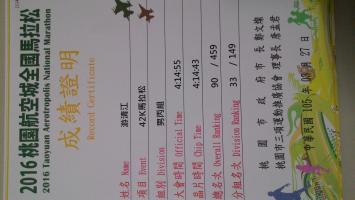 2016 桃園航空城全國馬拉松
2016 Taoyuan Aerotropolis National Marathon
成績證明
Record Certificate
姓名 Name 游濤江
項目 Event 42K馬拉松
組別 Division 男丙組
大會時間 Official Time 4:14:55
晶片時間 Chip Time 4:14:43
總名次 Overall Ranking 90 / 459
分組名次 Division Ranking 33 / 149
桃園市政府市長 鄭文燦
桃園市三項運動推廣協會 理事長 詹孟君
中華民國 105 年 03 月 27 日